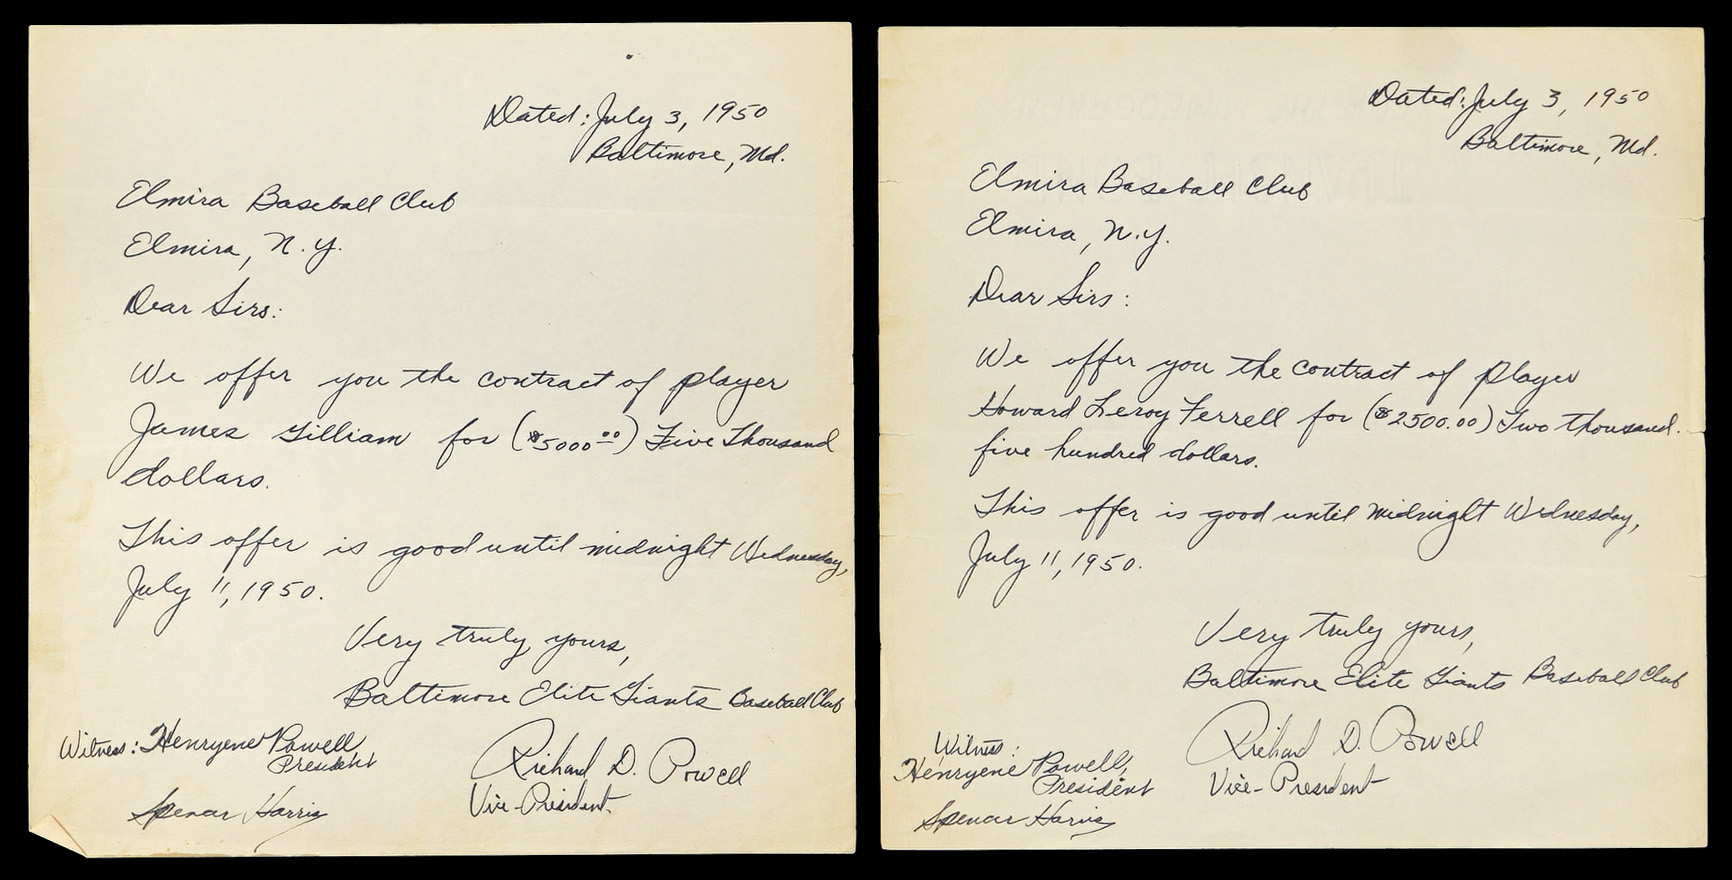 Dated: July 3, 1950
Baltimore, Md.
Elmira Baseball Club
Elmira, N.Y.
Dear Sirs:
We offer you the contract of player
James Gilliam for ($5000.00) Five Thousand
dollars.
This offer is good until midnight Wednesday,
July 11, 1950.
Very truly yours,
Baltimore Elite Giants Baseball Club
Witness: Henryene Powell
President
Richard D. Powell
Vice-President
Spencer Harris
Dated: July 3, 1950
Baltimore, Md.
Elmira Baseball Club
Elmira, N.Y.
Dear Sirs:
We offer you the contract of player
Howard Leroy Ferrell for ($2500.00) Two thousand
five hundred dollars.
This offer is good until midnight Wednesday,
July 11, 1950.
Very truly yours,
Baltimore Elite Giants Baseball Club
Richard D. Powell
Vice-President
Witness:
Henryene Powell,
President
Spencer Harris